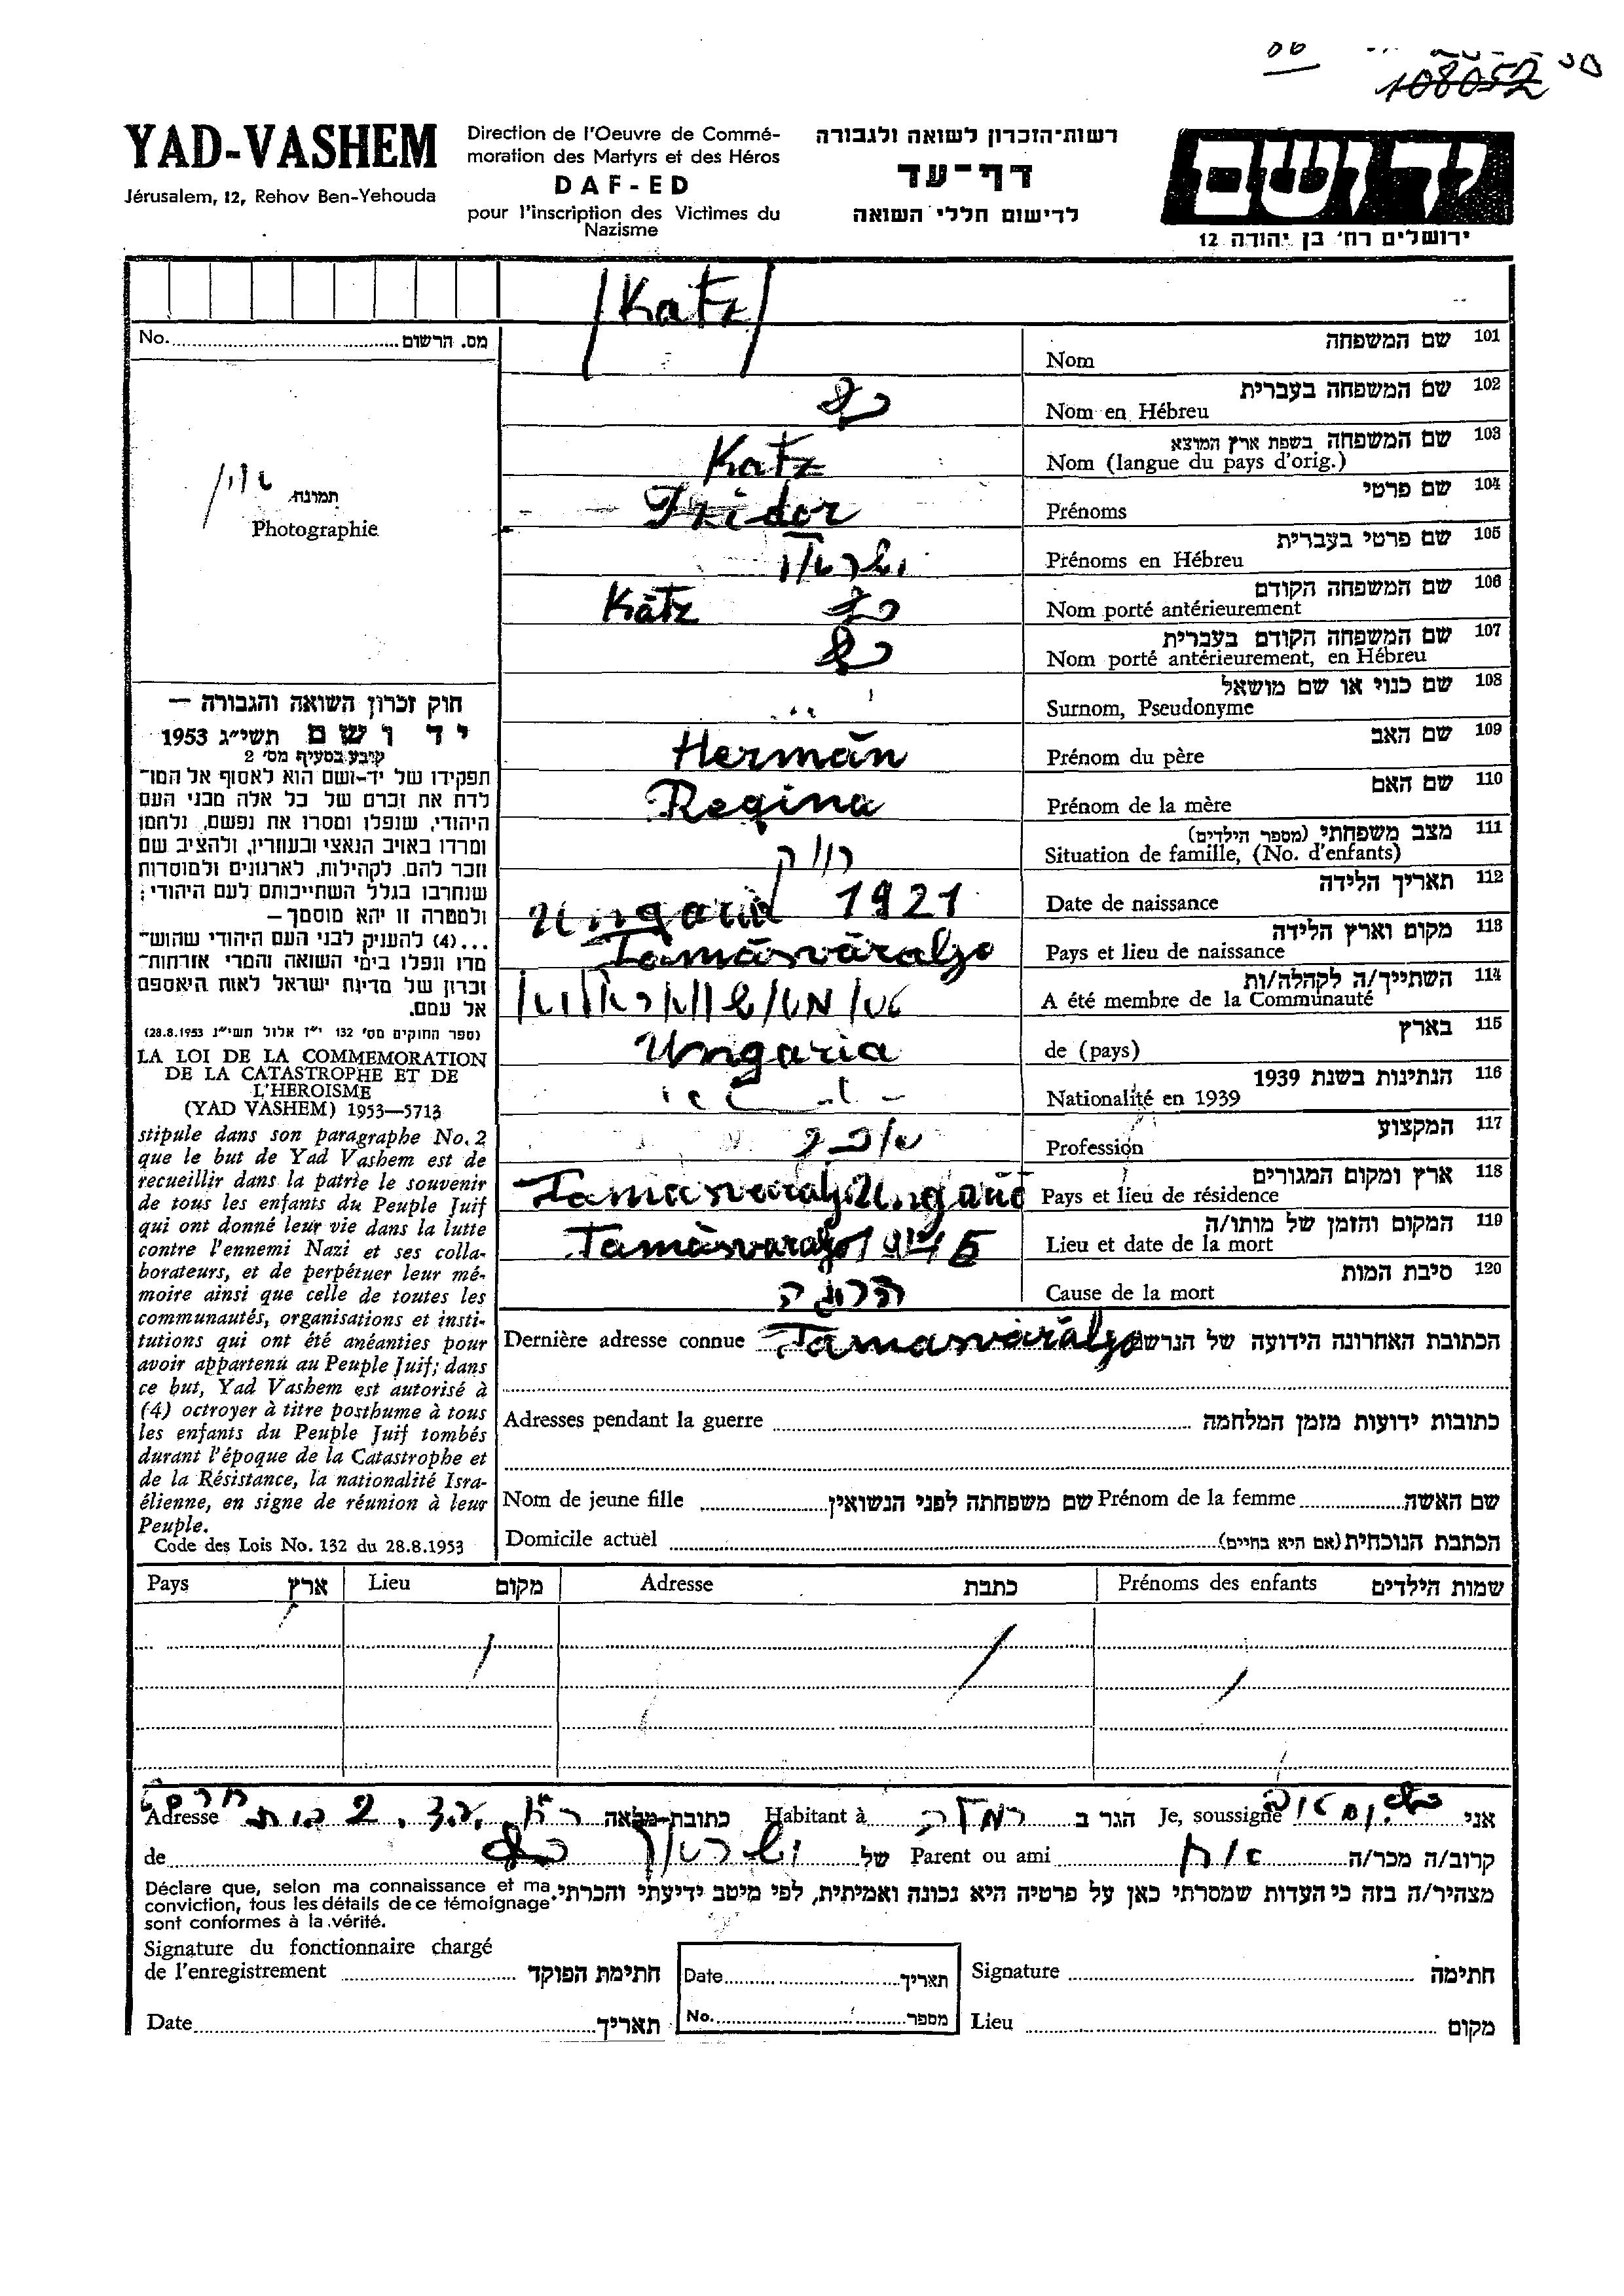 108052
YAD-VASHEM
Jérusalem, 12, Rehov Ben-Yehouda
Direction de l'Oeuvre de Commé-
moration des Martyrs et des Héros
DAF-ED
pour l'inscription des Victimes du
Nazisme
רשות-הזכרון לשואה ולגבורה
דף-עד
לרישום חללי השואה
יד ושם
ירושלים רח' בן יהודה 12
Katz
No. מס. הרשום
תמונה
Photographie
101 שם המשפחה
Nom
102 שם המשפחה בעברית
Nom en Hébreu כץ
103 שם המשפחה בשפת ארץ המוצא
Nom (langue du pays d'orig.) Katz
104 שם פרטי
Prénoms Izidor
105 שם פרטי בעברית
Prénoms en Hébreu
106 שם המשפחה הקודם
Nom porté antérieurement כץ Katz
107 שם המשפחה הקודם בעברית
Nom porté antérieurement, en Hébreu כץ
108 שם כנוי או שם מושאל
Surnom, Pseudonyme
109 שם האב
Prénom du père Hermán
110 שם האם
Prénom de la mère Regina
111 מצב משפחתי (מספר הילדים)
Situation de famille, (No. d'enfants) רווק
112 תאריך הלידה
Date de naissance 1921
113 מקום וארץ הלידה
Pays et lieu de naissance Ungaria Tamásváralja
114 השתייך/ה לקהלה/ות
A été membre de la Communauté
115 בארץ
de (pays) Ungaria
116 הנתינות בשנת 1939
Nationalité en 1939
117 המקצוע
Profession
118 ארץ ומקום המגורים
Pays et lieu de résidence Tamasvaralja Ungaria
119 המקום והזמן של מותו/ה
Lieu et date de la mort Tamàsvaralja 1945
120 סיבת המות
Cause de la mort
חוק זכרון השואה והגבורה —
יד ושם תשי"ג 1953
קובע בסעיף מס' 2
תפקידו של יד-ושם הוא לאסוף אל המו-
לדת את זכרם של כל אלה מבני העם
היהודי, שנפלו ומסרו את נפשם, נלחמו
ומרדו באויב הנאצי ובעוזריו, ולהציב שם
וזכר להם, לקהילות, לארגונים ולמוסדות
שנחרבו בגלל השתייכותם לעם היהודי;
ולמטרה זו יהא מוסמך —
...(4) להעניק לבני העם היהודי שהוש-
מדו ונפלו בימי השואה והמרי אזרחות-
זכרון של מדינת ישראל לאות היאספם
אל עמם.
(ספר החוקים מס' 132 י"ז אלול תשי"ג 28.8.1953)
LA LOI DE LA COMMEMORATION
DE LA CATASTROPHE ET DE
L'HEROISME
(YAD VASHEM) 1953—5713
stipule dans son paragraphe No. 2
que le but de Yad Vashem est de
recueillir dans la patrie le souvenir
de tous les enfants du Peuple Juif
qui ont donné leur vie dans la lutte
contre l'ennemi Nazi et ses colla-
borateurs, et de perpétuer leur mé-
moire ainsi que celle de toutes les
communautés, organisations et insti-
tutions qui ont été anéanties pour
avoir appartenu au Peuple Juif; dans
ce but, Yad Vashem est autorisé à
(4) octroyer à titre posthume à tous
les enfants du Peuple Juif tombés
durant l'époque de la Catastrophe et
de la Résistance, la nationalité Isra-
élienne, en signe de réunion à leur
Peuple.
Code des Lois No. 132 du 28.8.1953
Dernière adresse connue Tamasváralja הכתובת האחרונה הידועה של הנרשם
Adresses pendant la guerre כתובות ידועות מזמן המלחמה
Nom de jeune fille שם משפחתה לפני הנשואין Prénom de la femme שם האשה
Domicile actuel הכתבת הנוכחית (אם היא בחיים)
Pays ארץ Lieu מקום Adresse כתבת Prénoms des enfants שמות הילדים
אני Je, soussigné הגר ב רמלה Habitant à כתובת מלאה Adresse
קרוב/ה מכר/ה אח Parent ou ami של כץ de
מצהיר/ה בזה כי העדות שמסרתי כאן על פרטיה היא נכונה ואמיתית, לפי מיטב ידיעתי והכרתי.
Déclare que, selon ma connaissance et ma
conviction, tous les détails de ce témoignage
sont conformes à la vérité.
Signature du fonctionnaire chargé
de l'enregistrement חתימת הפוקד
Date תאריך
Signature חתימה
Date תאריך
No. מספר
Lieu מקום